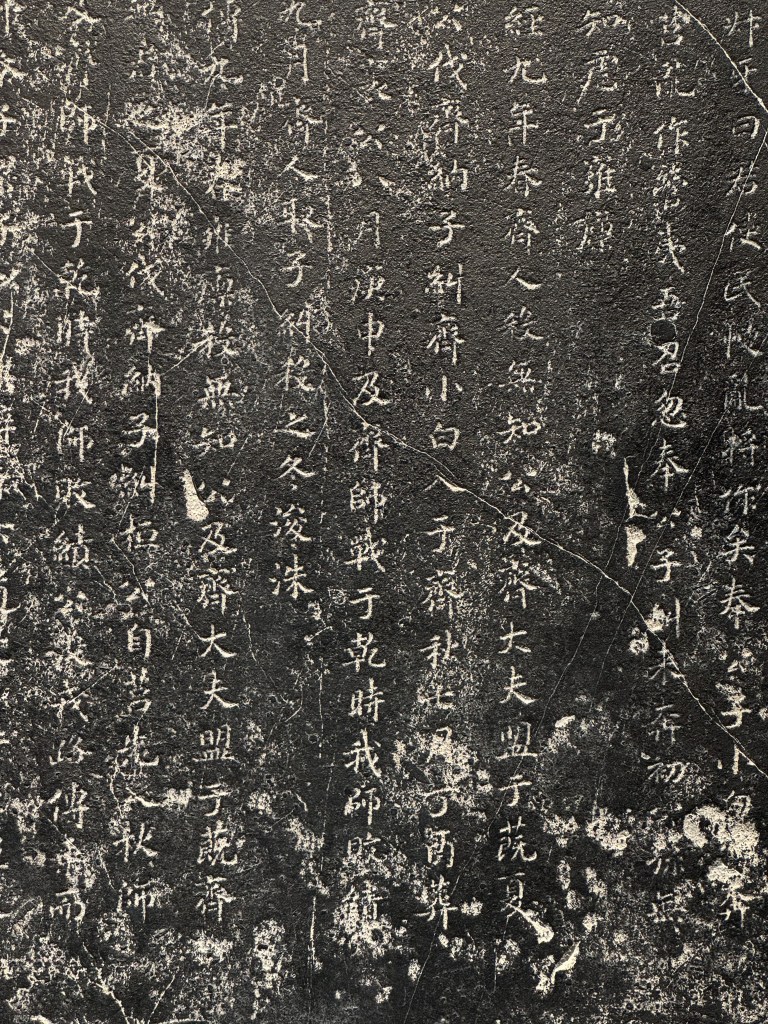 叔牙曰君使民慢亂將作矣奉公子小白奔
莒亂作管夷吾召忽奉公子糾來奔初公孫無
知虐于雍廩
經九年春齊人殺無知公及齊大夫盟于蔇夏
公伐齊納子糾齊小白入于齊秋七月丁酉葬
齊襄公八月庚申及齊師戰于乾時我師敗績
九月齊人取子糾殺之冬浚洙
傳九年春雍廩殺無知公及齊大夫盟于蔇齊
無君也夏公伐齊納子糾桓公自莒先入秋師
及齊師戰于乾時我師敗績公喪戎路傳乘而